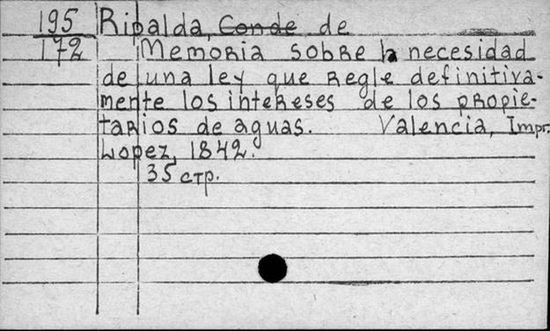 195 Ripalda, Conde de
172 Memoria sobre la necesidad
de una ley que regle definitiva-
mente los intereses de los propie-
tarios de aguas. Valencia, Impr.
Lopez, 1842.
35 стр.